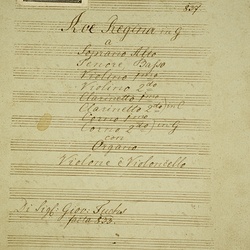 837.
Ave Regina in G
a
Soprano Alto
Tenore Basso
Violino 1mo
Violino 2do
Clarinetto 1mo
Clarinetto 2do in C
Corno 1mo
Corno 2do in G
con
Organo
Violone è Violoncello
Di Sigl: Giov: Fuchs